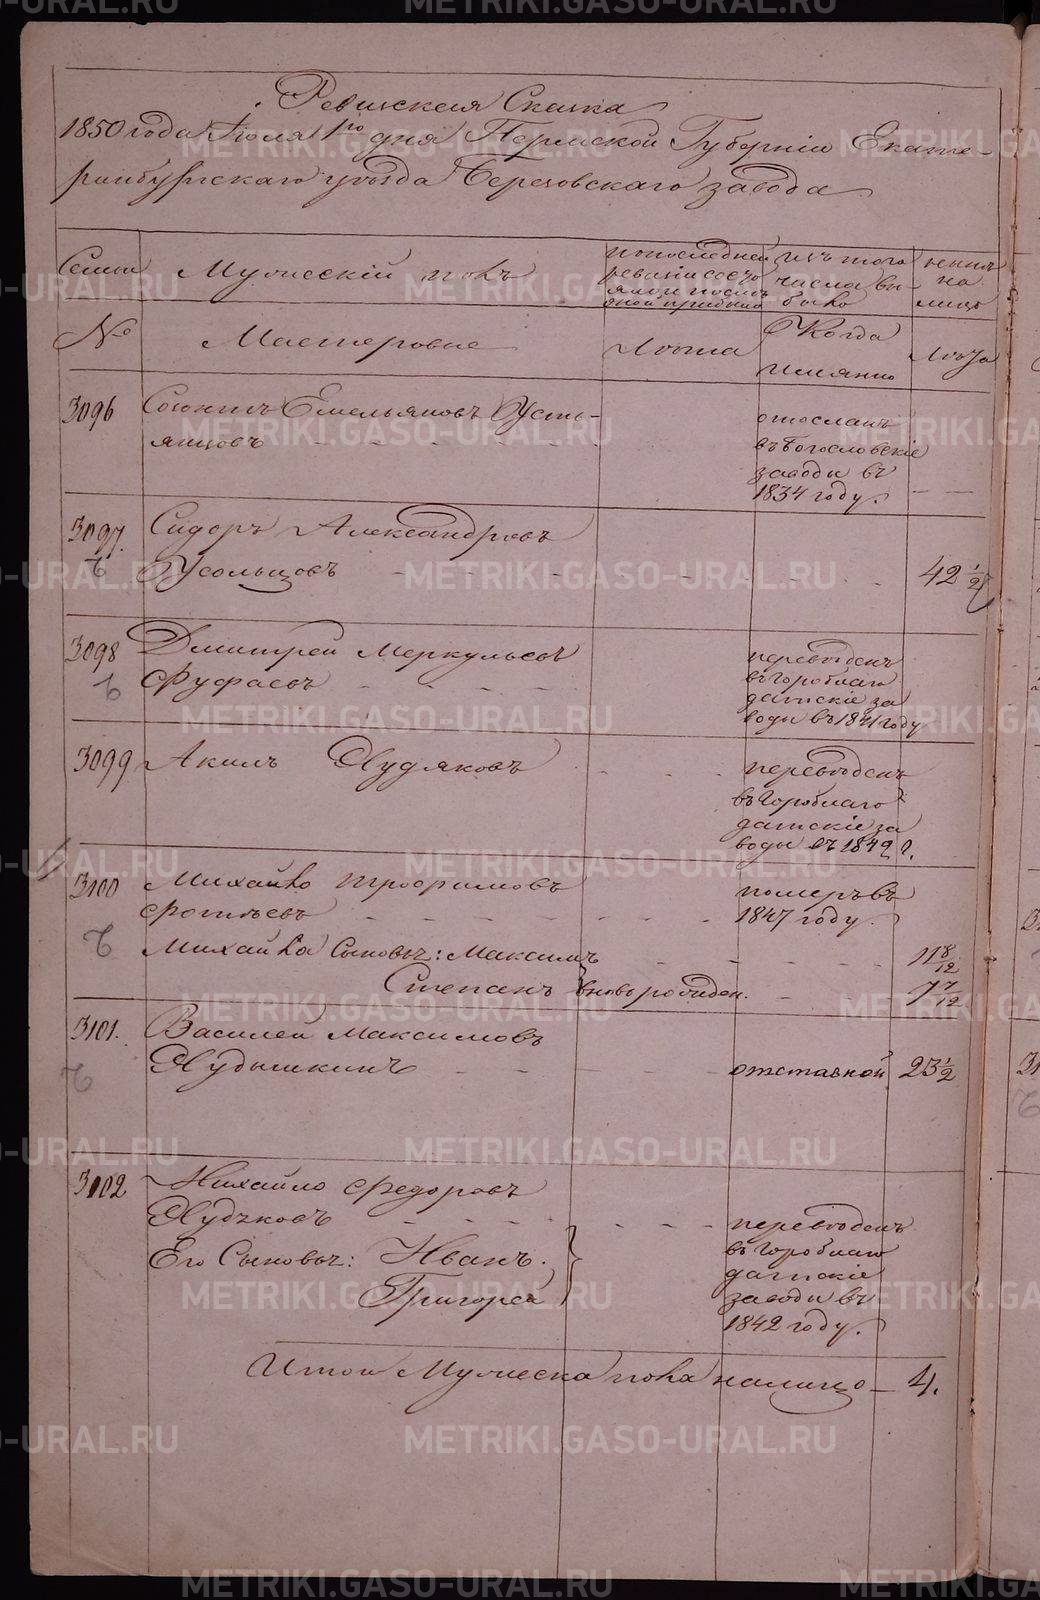 Ревижская Сказка
1850 года Июля 1го дня Пермской Губернiи Екате-
ринбургскаго уѣзда Березовскаго завода
Семьи
Мужескiй полъ
по последней
ревизiи состо
яло и послѣ
оной прибыло
изъ того
числа вы-
было
ныне
на
лицо
№
Мастеровые
Лѣта
Когда
имянно
Лѣта
3096
Емельяновъ Усть-
янцовъ
отосланъ
въ Богословскiе
заводы въ
1834 году.
3097
Сидоръ Александровъ
Усольцовъ
42 1/2
3098
Дмитрей Меркульевъ
Фуфаевъ
переведенъ
въ Гороблаго
датскiе за
воды въ 1841 году
3099
Акимъ Худяковъ
переведенъ
въ Гороблаго
датскiе за
воды въ 1842 г.
3100
Михайло Трофимовъ
Фотѣевъ
померъ въ
1847 году.
Михайла Сыновья: Максимъ
11 8/12
Степанъ
вновьрожден.
7/12
3101.
Василей Максимовъ
Худышкинъ
отставной
23 1/2
3102
Михайло Федоровъ
Худяковъ
переведенъ
въ Гороблаго
датскiе
заводы въ
1842 году.
Его Сыновья: Иванъ.
Григорей
Итого Мужеска пола налицо — 4.
METRIKI.GASO-URAL.RU